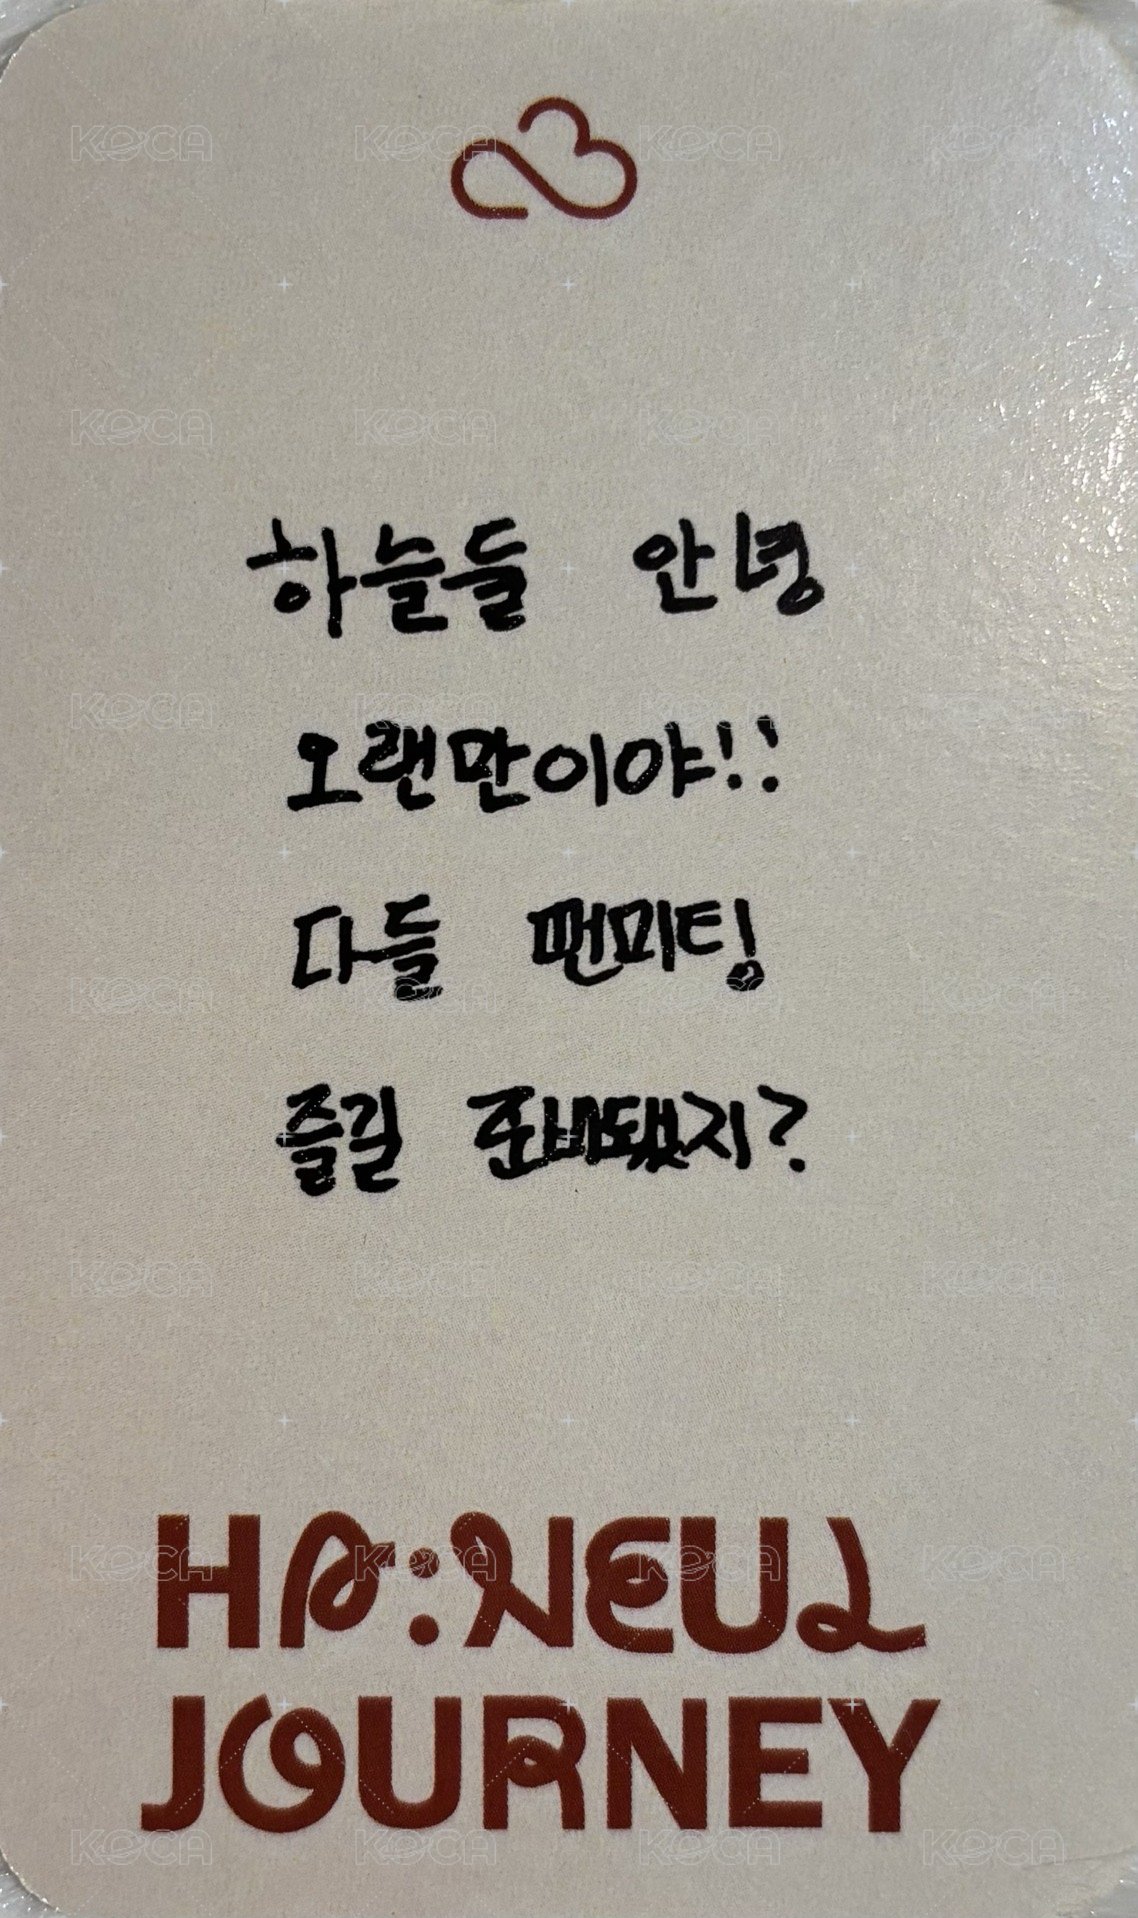 하늘들 안녕
오랜만이야!!
다들 팬미팅
즐길 준비됐지?
HA:NEUL
JOURNEY